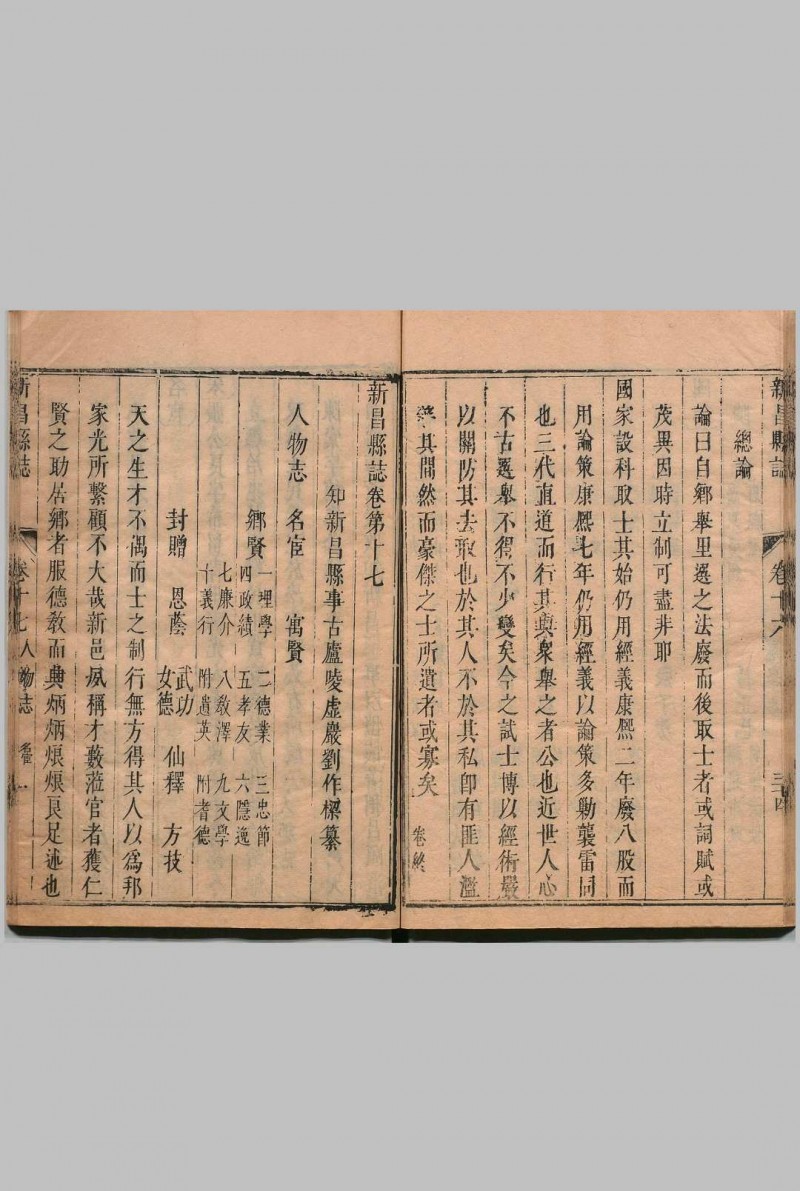 新昌縣誌 卷十六 三十四
總論
論曰自鄉舉里選之法廢而後取士者或詞賦或
茂異因時立制可盡非耶
國家設科取士其始仍用經義康熙二年廢八股而
用論策康熙七年仍用經義以論策多勦襲雷同
也三代直道而行其與衆舉之者公也近世人心
不古選舉不得不少變矣今之試士博以經術嚴
以關防其去取也於其人不於其私卽有匪人濫
其間然而豪傑之士所遺者或寡矣 卷終
新昌縣誌卷第十七
知新昌縣事古廬陵虛巖劉作樑纂
人物志 名宦 寓賢
鄉賢 一理學 二德業 三忠節
四政績 五孝友 六隱逸
七廉介 八敎澤 九文學
十義行 附遺英 附耆德
封贈 恩蔭 武功 女德 仙釋 方技
天之生才不偶而士之制行無方得其人以爲邦
家光所繋顧不大哉新邑夙稱才藪蒞官者獲仁
賢之助居鄉者服德敎而典炳炳烺烺良足述也
新昌縣誌 卷十七 人物志 一